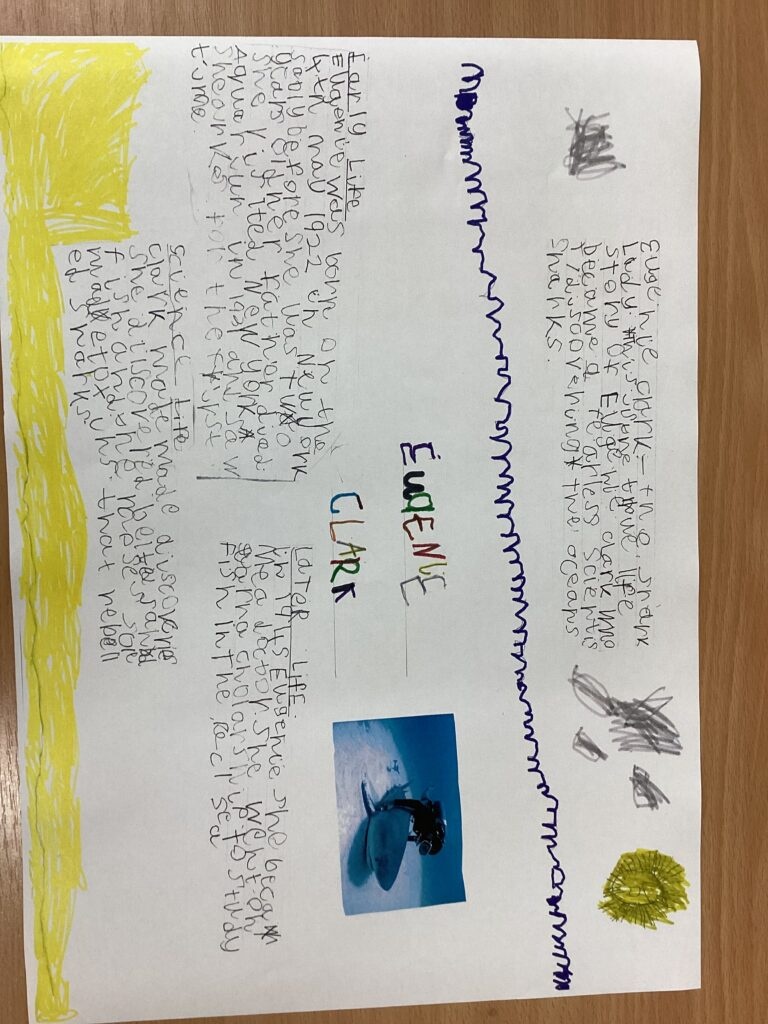 Eugenie clark - the shark
Lady. this is the true life
story of Eugenie clark who
become a fearless scientis
/discovering the oceans
sharks.
EugENIE
CLARK
Early Life
Eugenie was born on the
4th may 1922 in New York
sadly before she was two
years old her father died.
she visited New york
Aquarium in las and saw
shearks for the fryst
time.
LateR LIFE
in 19 Eugenie she becam
a doctor she went on
a scholarship to study
Fish in the Red sea
Science Life
Clark made made discoverie
She discovered
fish and the moses sole
made toxins that repell
ed sharks.